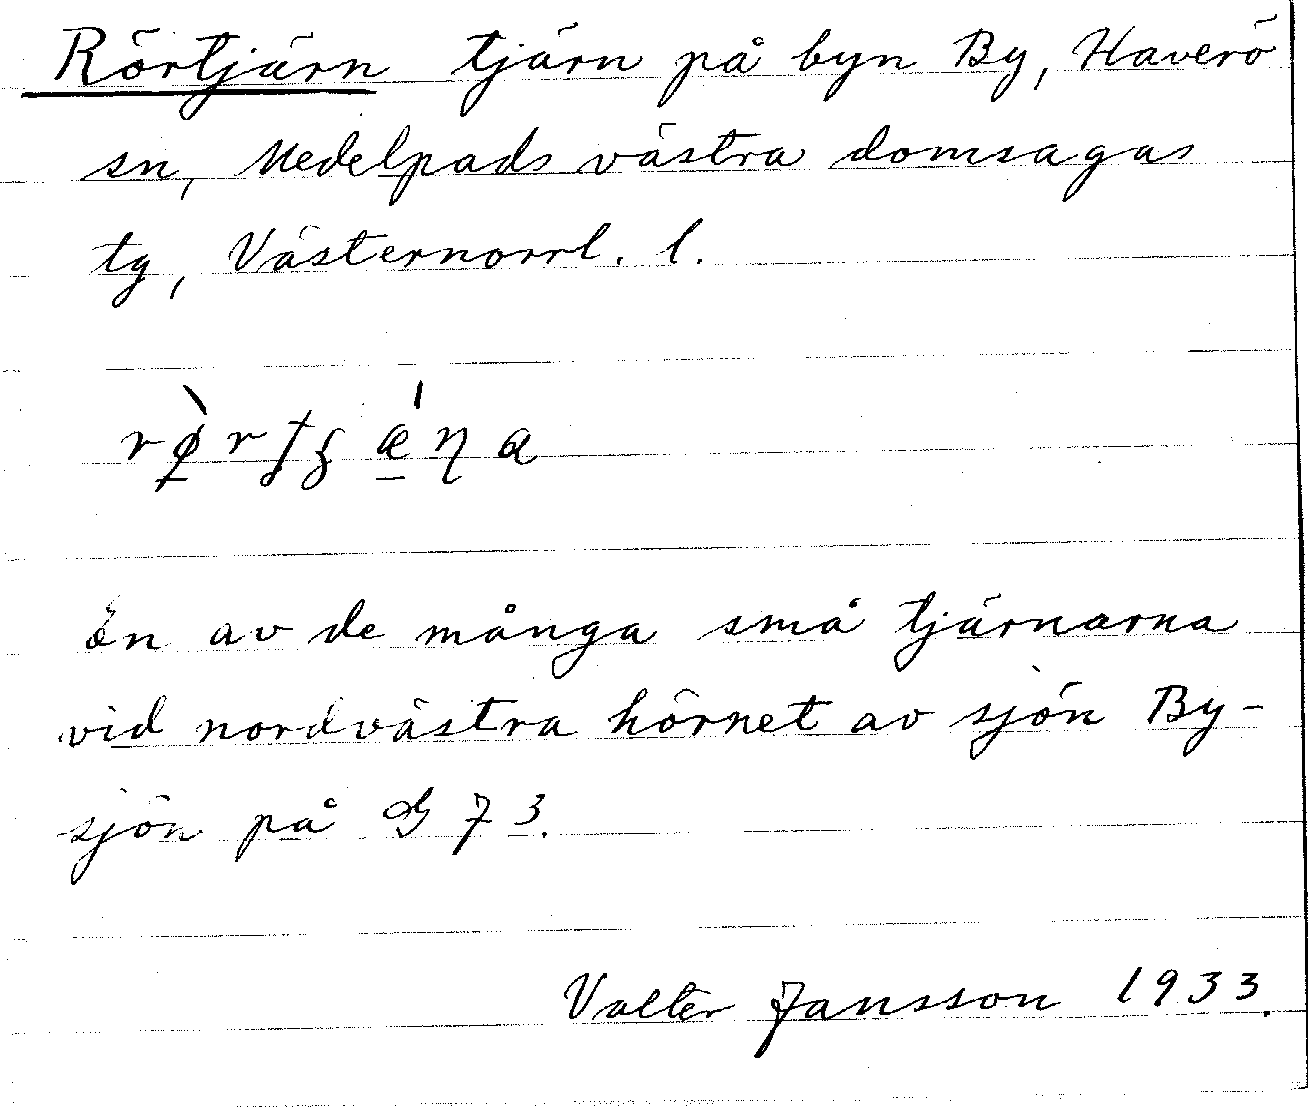 Rörtjärn tjärn på byn By, Haverö
sn, Medelpads västra domsagas
tg, Västernorrl. l.
En av de många små tjärnarna
vid nordvästra hörnet av sjön By-
sjön på G 73.
Valter Jansson 1933.